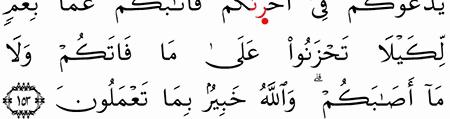 يَدْعُوكُمْ فِىٓ أُخْرَىٰكُمْ فَأَثَٰبَكُمْ غَمًّۢا بِغَمٍّۢ
لِّكَيْلَا تَحْزَنُوا۟ عَلَىٰ مَا فَاتَكُمْ وَلَا
مَآ أَصَٰبَكُمْ ۗ وَٱللَّهُ خَبِيرٌۢ بِمَا تَعْمَلُونَ ١٥٣